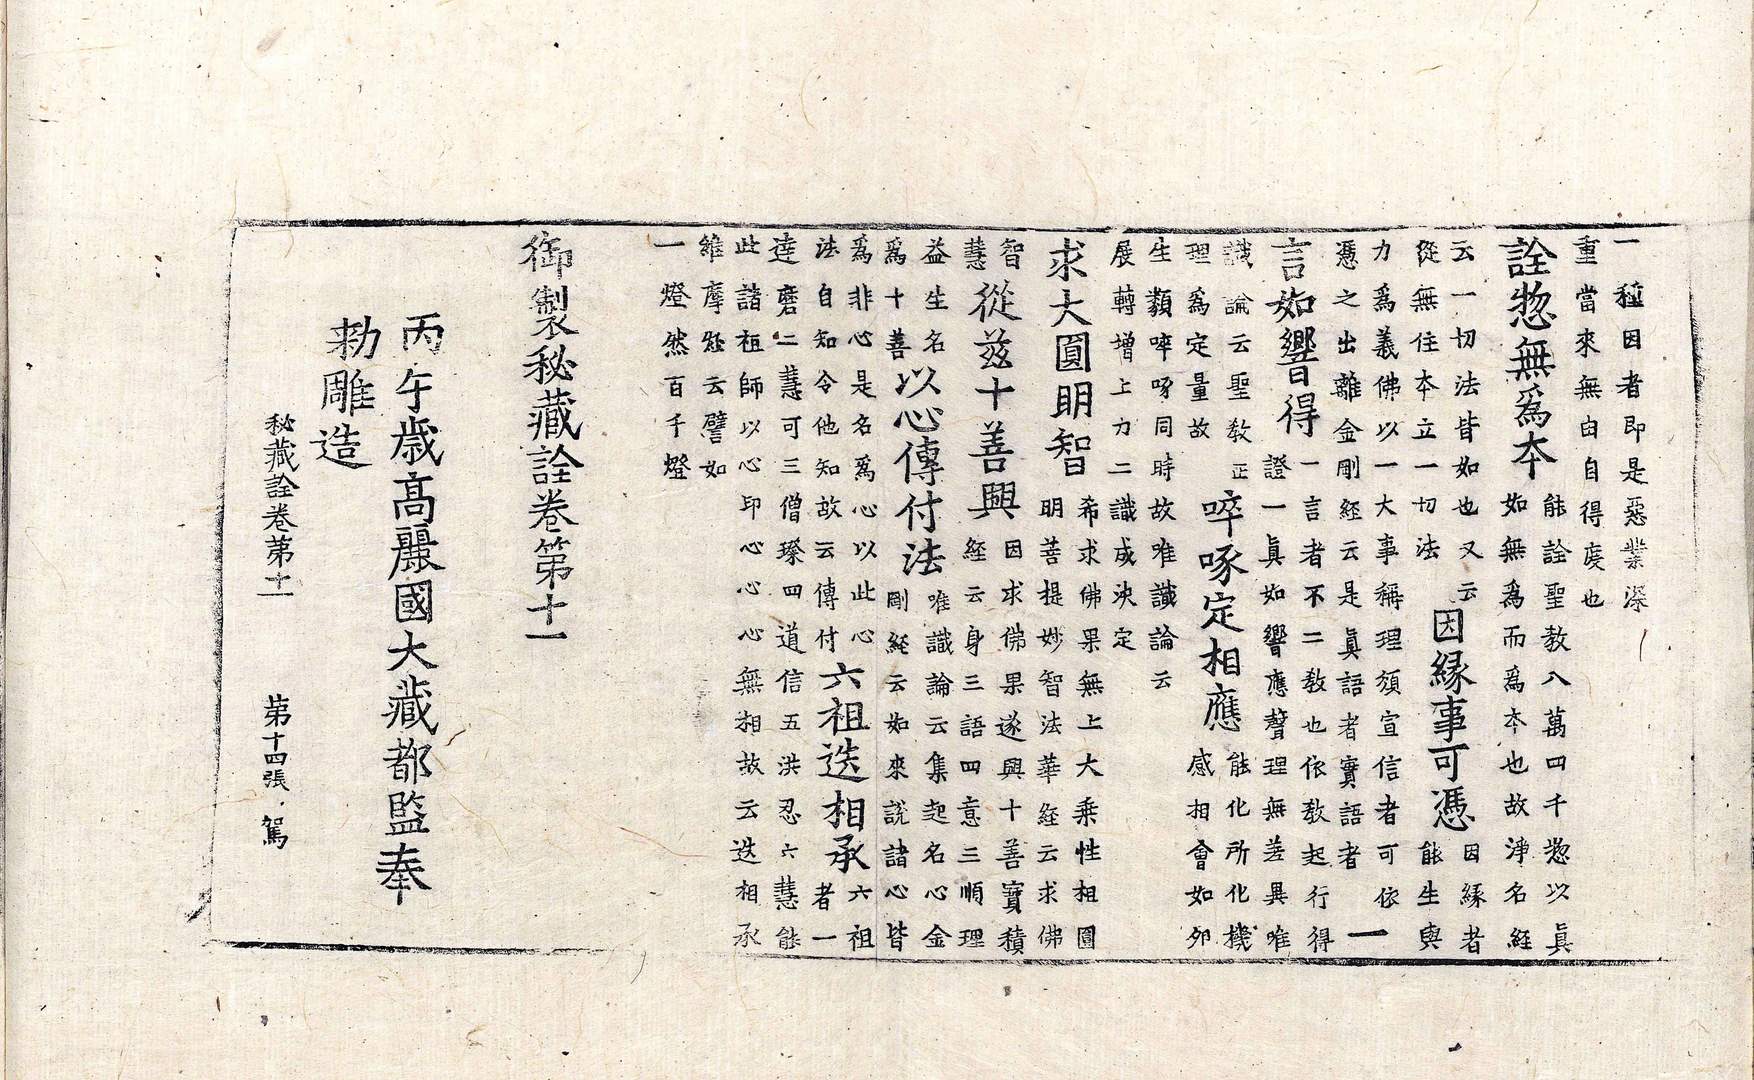 一種因者即是惡業深
重當來無由自得度也
詮惣無爲本
能詮聖教八萬四千惣以眞
如無爲而爲本也故淨名經
云一切法皆如也又云
從無住本立一切法
因緣事可憑
因緣者
能生與
力爲義佛以一大事稱理頒宣信者可依
憑之出離金剛經云是眞語者實語者
一
言如響得
一言者不二教也依教起行得
證一眞如響應聲理無差異唯
識論云聖教正
理爲定量故
啐啄定相應
能化所化機
感相會如卵
生類啐啄同時故唯識論云
展轉增上力二識成決定
求大圓明智
希求佛果無上大乘性相圓
明菩提妙智法華經云求佛
智
慧
從兹十善興
因求佛果遂興十善寶積
經云身三語四意三順理
益生名
爲十善
以心傳付法
唯識論云集起名心金
剛經云如來說諸心皆
爲非心是名爲心以此心
法自知令他知故云傳付
六祖迭相承
六祖
者一
達磨二慧可三僧璨四道信五洪忍六慧能
此諸祖師以心印心心心無相故云迭相承
維摩經云譬如
一燈然百千燈
御製秘藏詮卷第十一
丙午歲高麗國大藏都監奉
勑雕造
秘藏詮卷第十一 第十四張 駕